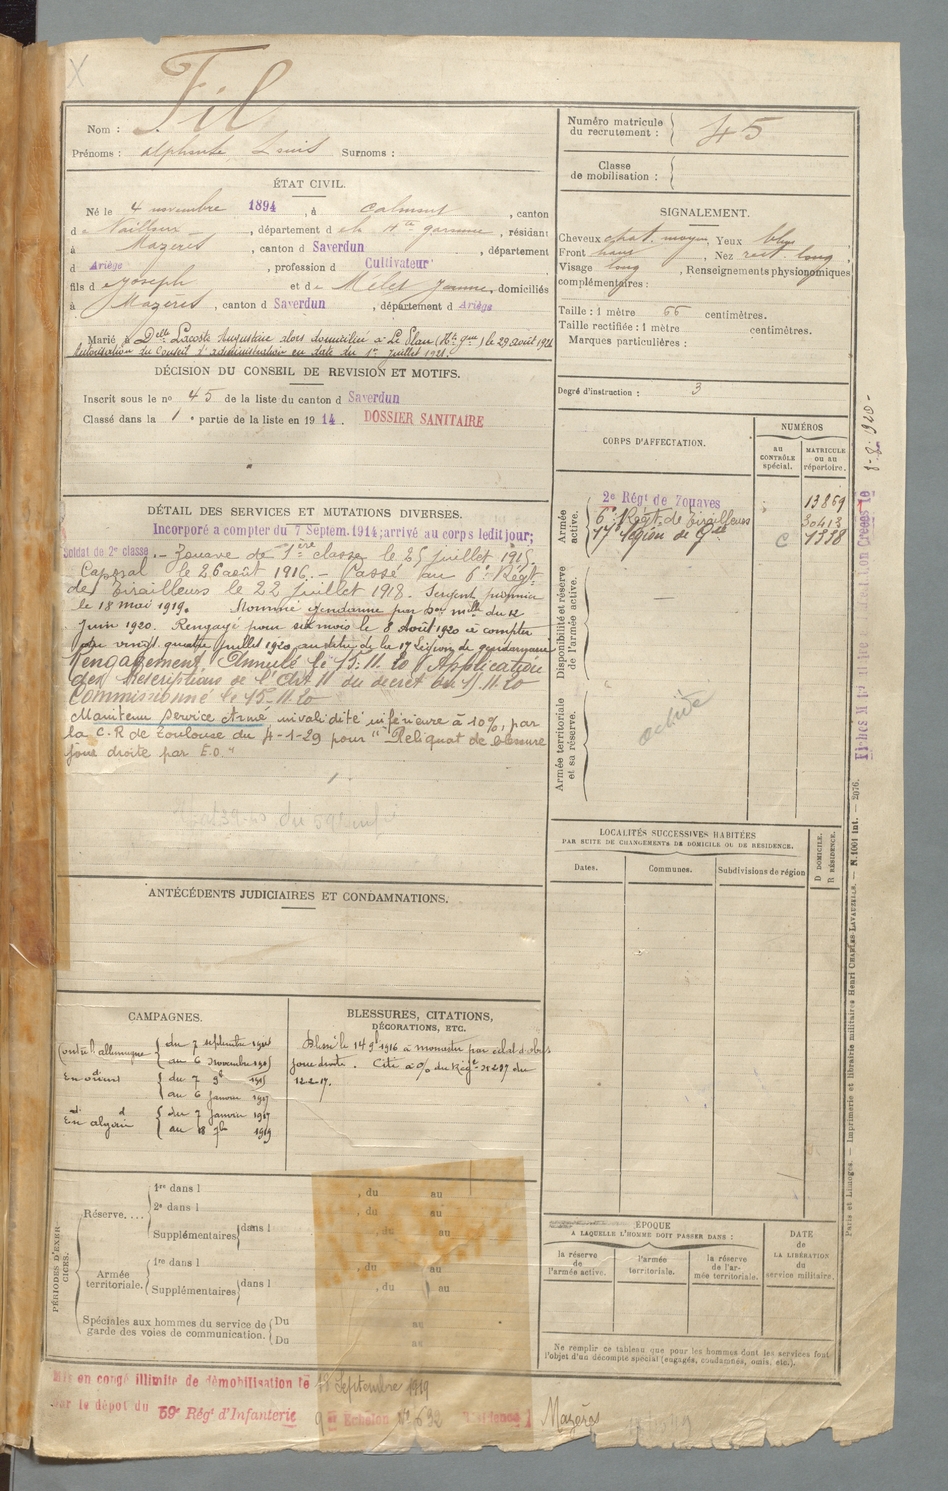 X
Fil
Nom :
Prénoms : Alphonse Louis Surnoms :
ÉTAT CIVIL.
Né le 4 novembre 1894, à Calmont, canton
de Nailloux, département de la Hte garonne, résidant
à Mazères, canton d Saverdun, département
d Ariège, profession d Cultivateur
fils de Joseph et de Melet Jeanne, domiciliés
à Mazères, canton d Saverdun, département d Ariège
Marié à Delle Lacoste Augustine alors domiciliée à Le Plan (Hte Gne) le 29 août 1921
Autorisation du Conseil d'administration en date du 1er Juillet 1921.
DÉCISION DU CONSEIL DE REVISION ET MOTIFS.
Inscrit sous le no 45 de la liste du canton d Saverdun
Classé dans la 1e partie de la liste en 1914. DOSSIER SANITAIRE
DÉTAIL DES SERVICES ET MUTATIONS DIVERSES.
Incorporé a compter du 7 Septem. 1914; arrivé au corps ledit jour;
Soldat de 2e classe. - Zouave de 1ère classe le 25 juillet 1915
Caporal le 26 août 1916. - Passé au 6e Régt
de Tirailleurs le 22 Juillet 1918. Sergent pionnier
le 18 mai 1919. Nommé gendarme par Don mlle du 12
Juin 1920. Rengagé pour six mois le 8 Août 1920 à compter
du vingt quatre Juillet 1920, au titre de la 17 Légion de gendarmerie
Rengagement Annulé le 15.11.20 Application
des Prescriptions de l'Art 11 du decret du 11.20
Commissionné le 15-11-20
Maintenu Service Armé invalidité inférieure à 10%, par
la C.R de Toulouse du 4-1-29 pour "Reliquat de blessure
joue droite par E.O."
du 59e inf
ANTÉCÉDENTS JUDICIAIRES ET CONDAMNATIONS.
CAMPAGNES.
Contre l'allemagne { du 7 septembre 1914
au 6 novembre 1915
En orient { du 7 9b 1915
au 6 janvier 1917
En algérie { du 7 janvier 1917
au 18 7bre 1919
BLESSURES, CITATIONS,
DÉCORATIONS, ETC.
Blessé le 14 9b 1916 à monastir par éclat d'obus
joue droite. Cité à o/o du Régt no 287 du
12-2-17.
PÉRIODES D'EXERCICES.
Réserve.... 1re dans l , du au
2e dans l , du au
Supplémentaires dans l , du au
Armée territoriale. 1re dans l , du au
Supplémentaires dans l , du au
Spéciales aux hommes du service de
garde des voies de communication. Du au
Du au
Mis en congé illimité de démobilisation le 18 Septembre 1919
par le dépot du 59e Régt d'Infanterie
9e Echelon No 632 Résidence Mazères
Numéro matricule
du recrutement : 45
Classe
de mobilisation :
SIGNALEMENT.
Cheveux chat. moyen, Yeux bleus
Front haut, Nez rect. long
Visage long, Renseignements physionomiques
complémentaires :
Taille : 1 mètre 66 centimètres.
Taille rectifiée : 1 mètre centimètres.
Marques particulières :
Degré d'instruction : 3
CORPS D'AFFECTATION.
NUMÉROS
AU CONTRÔLE spécial.
MATRICULE OU AU répertoire.
Armée active.
2e Régt de Zouaves 13869
6e Régt de Tirailleurs 30413
17e Légion de Gie C 1338
Disponibilité et réserve de l'armée active.
Armée territoriale et sa réserve.
active
LOCALITÉS SUCCESSIVES HABITÉES
PAR SUITE DE CHANGEMENTS DE DOMICILE OU DE RÉSIDENCE.
Dates. Communes. Subdivisions de région
D DOMICILE.
R RÉSIDENCE.
ÉPOQUE
A LAQUELLE L'HOMME DOIT PASSER DANS :
la réserve de l'armée active.
l'armée territoriale.
la réserve de l'armée territoriale.
DATE de LA LIBÉRATION du service militaire.
Ne remplir ce tableau que pour les hommes dont les services font
l'objet d'un décompte spécial (engagés, condamnés, omis, etc.).
1-8-1920-
Paris et Limoges. — Imprimerie et librairie militaires Henri CHARLES-LAVAUZELLE. — N. 1001 int. — 2076.